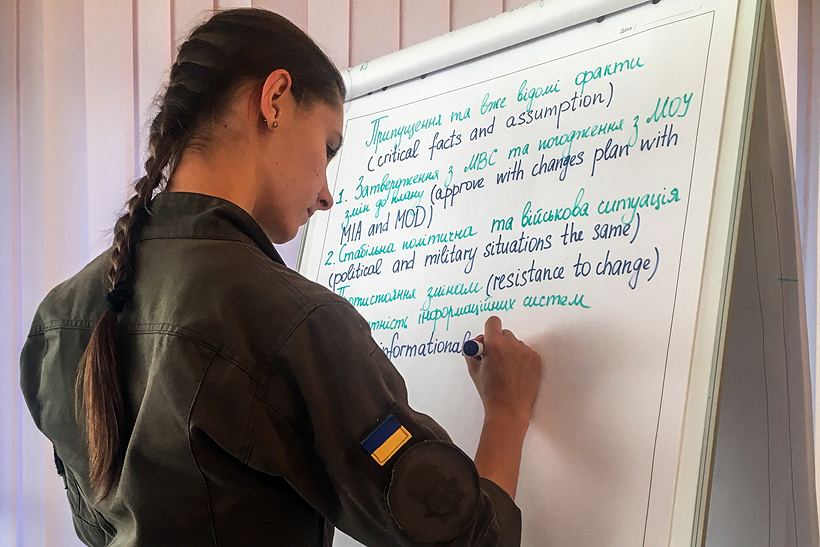 Дата /
Припущення та вже відомі факти
(critical facts and assumption)
1. Затвердження з МВС та погодження з МОУ
змін до плану (approve with changes plan with
MIA and MOD)
2. Стабільна політична та військова ситуація
(political and military situations the same)
змінам (resistance to change)
інформаційних систем
informational